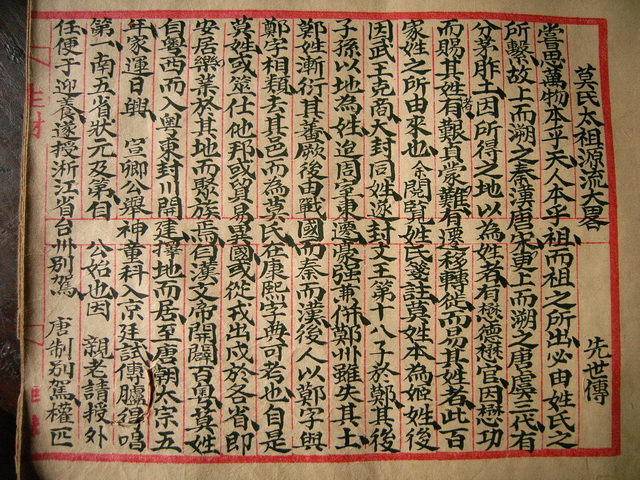 莫氏太祖源流大畧　先世傳
嘗思萬物本乎天人本乎祖而祖之所出必由姓氏之
所繫故上而溯之秦漢唐宋更上而溯之唐虞三代有
分茅胙土因所得之地以為姓者有懋德懋官因懋功
而賜其姓者有艱真蒙難有遷移轉徙而易其姓者此百
家姓之所由來也余閱覧姓氏箋註莫姓本為姬姓後
因武王克商大封同姓遂封文王第十八子於鄭其後
子孫以地為姓迨周室東遷豪强兼併鄭州雖失其土
鄭姓漸衍其蕃厥後由戰國而秦而漢後人以鄭字與
鄭字相類去其邑而為莫氏在康熙字典可考也自是
莫姓或筮仕他邦或貿易異國或從戎出戍於各省即
安居樂業於其地而聚族焉自漢文帝開闢百粤莫姓
自粤西而入粤東封川開建擇地而居至唐朝太宗五
年家運日興　宣卿公舉神童科入京廷試傳臚得唱
第一南五省狀元及第自　公始也因　親老請授外
任便于迎養遂授浙江省台州别駕　唐制别駕權匹